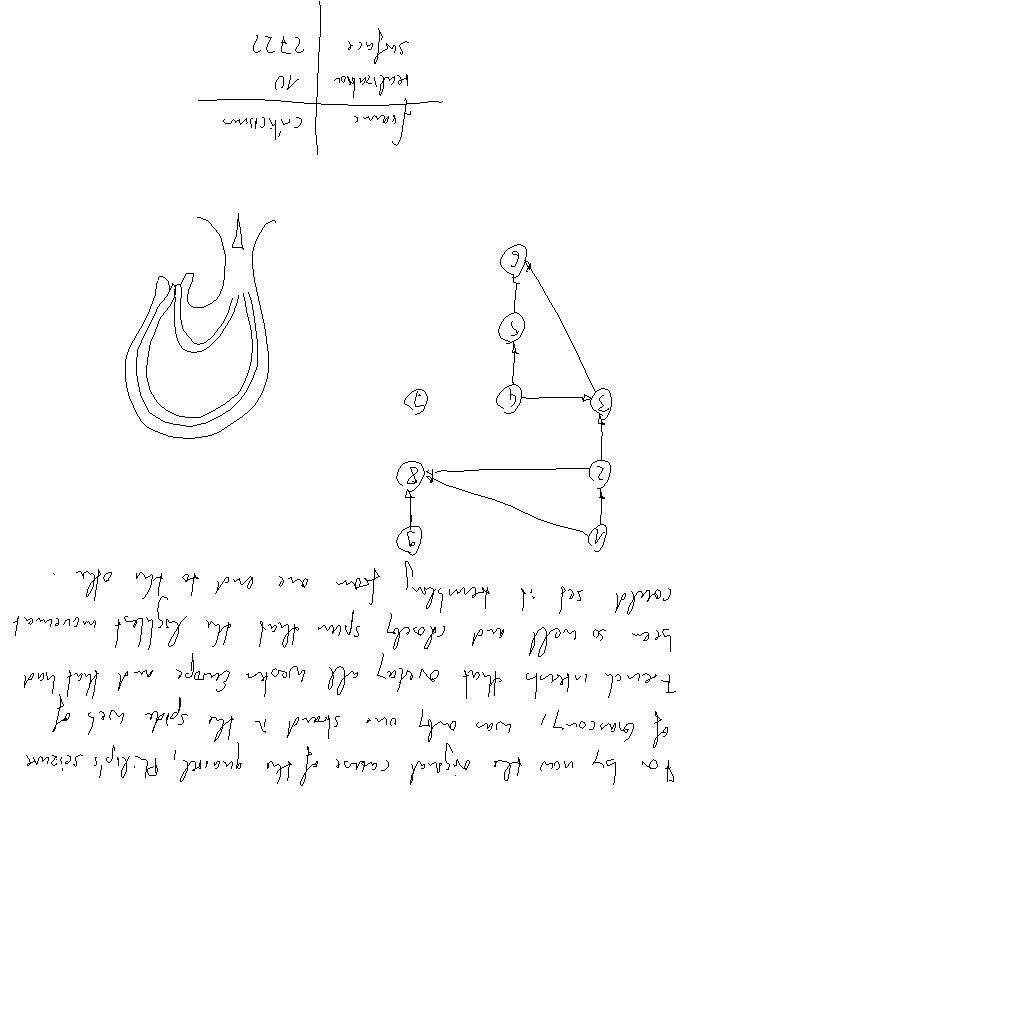 For by now the original cause of the quarrel, Philip's seizure
of Gascony, was only one strand in the spider web of
French interests that overlay all western Europe and that had
been so well and closely spun that the lightest movement
could set it trembling from one end to the other .
1 9
2 8
3 4 7
5
6
frame criticism
realization 10
surface 2722